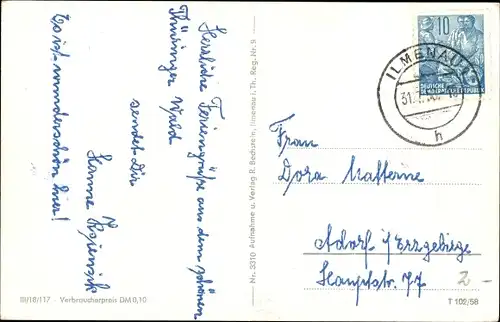 Herzliche Feriengrüße aus dem schönen
Thüringer Wald
sendet Dir
Hanne
Es ist wunderschön hier!
III/18/117 - Verbraucherpreis DM 0,10
Nr. 3310 Aufnahme u. Verlag R. Bechstein, Ilmenau i. Th. Reg.-Nr. 9
10
DEUTSCHE
DEMOKRATISCHE REPUBLIK
ILMENAU
31.
h
Frau
Dora
Adorf i/Erzgebirge
Hauptstr. 77
2-
T 102/58